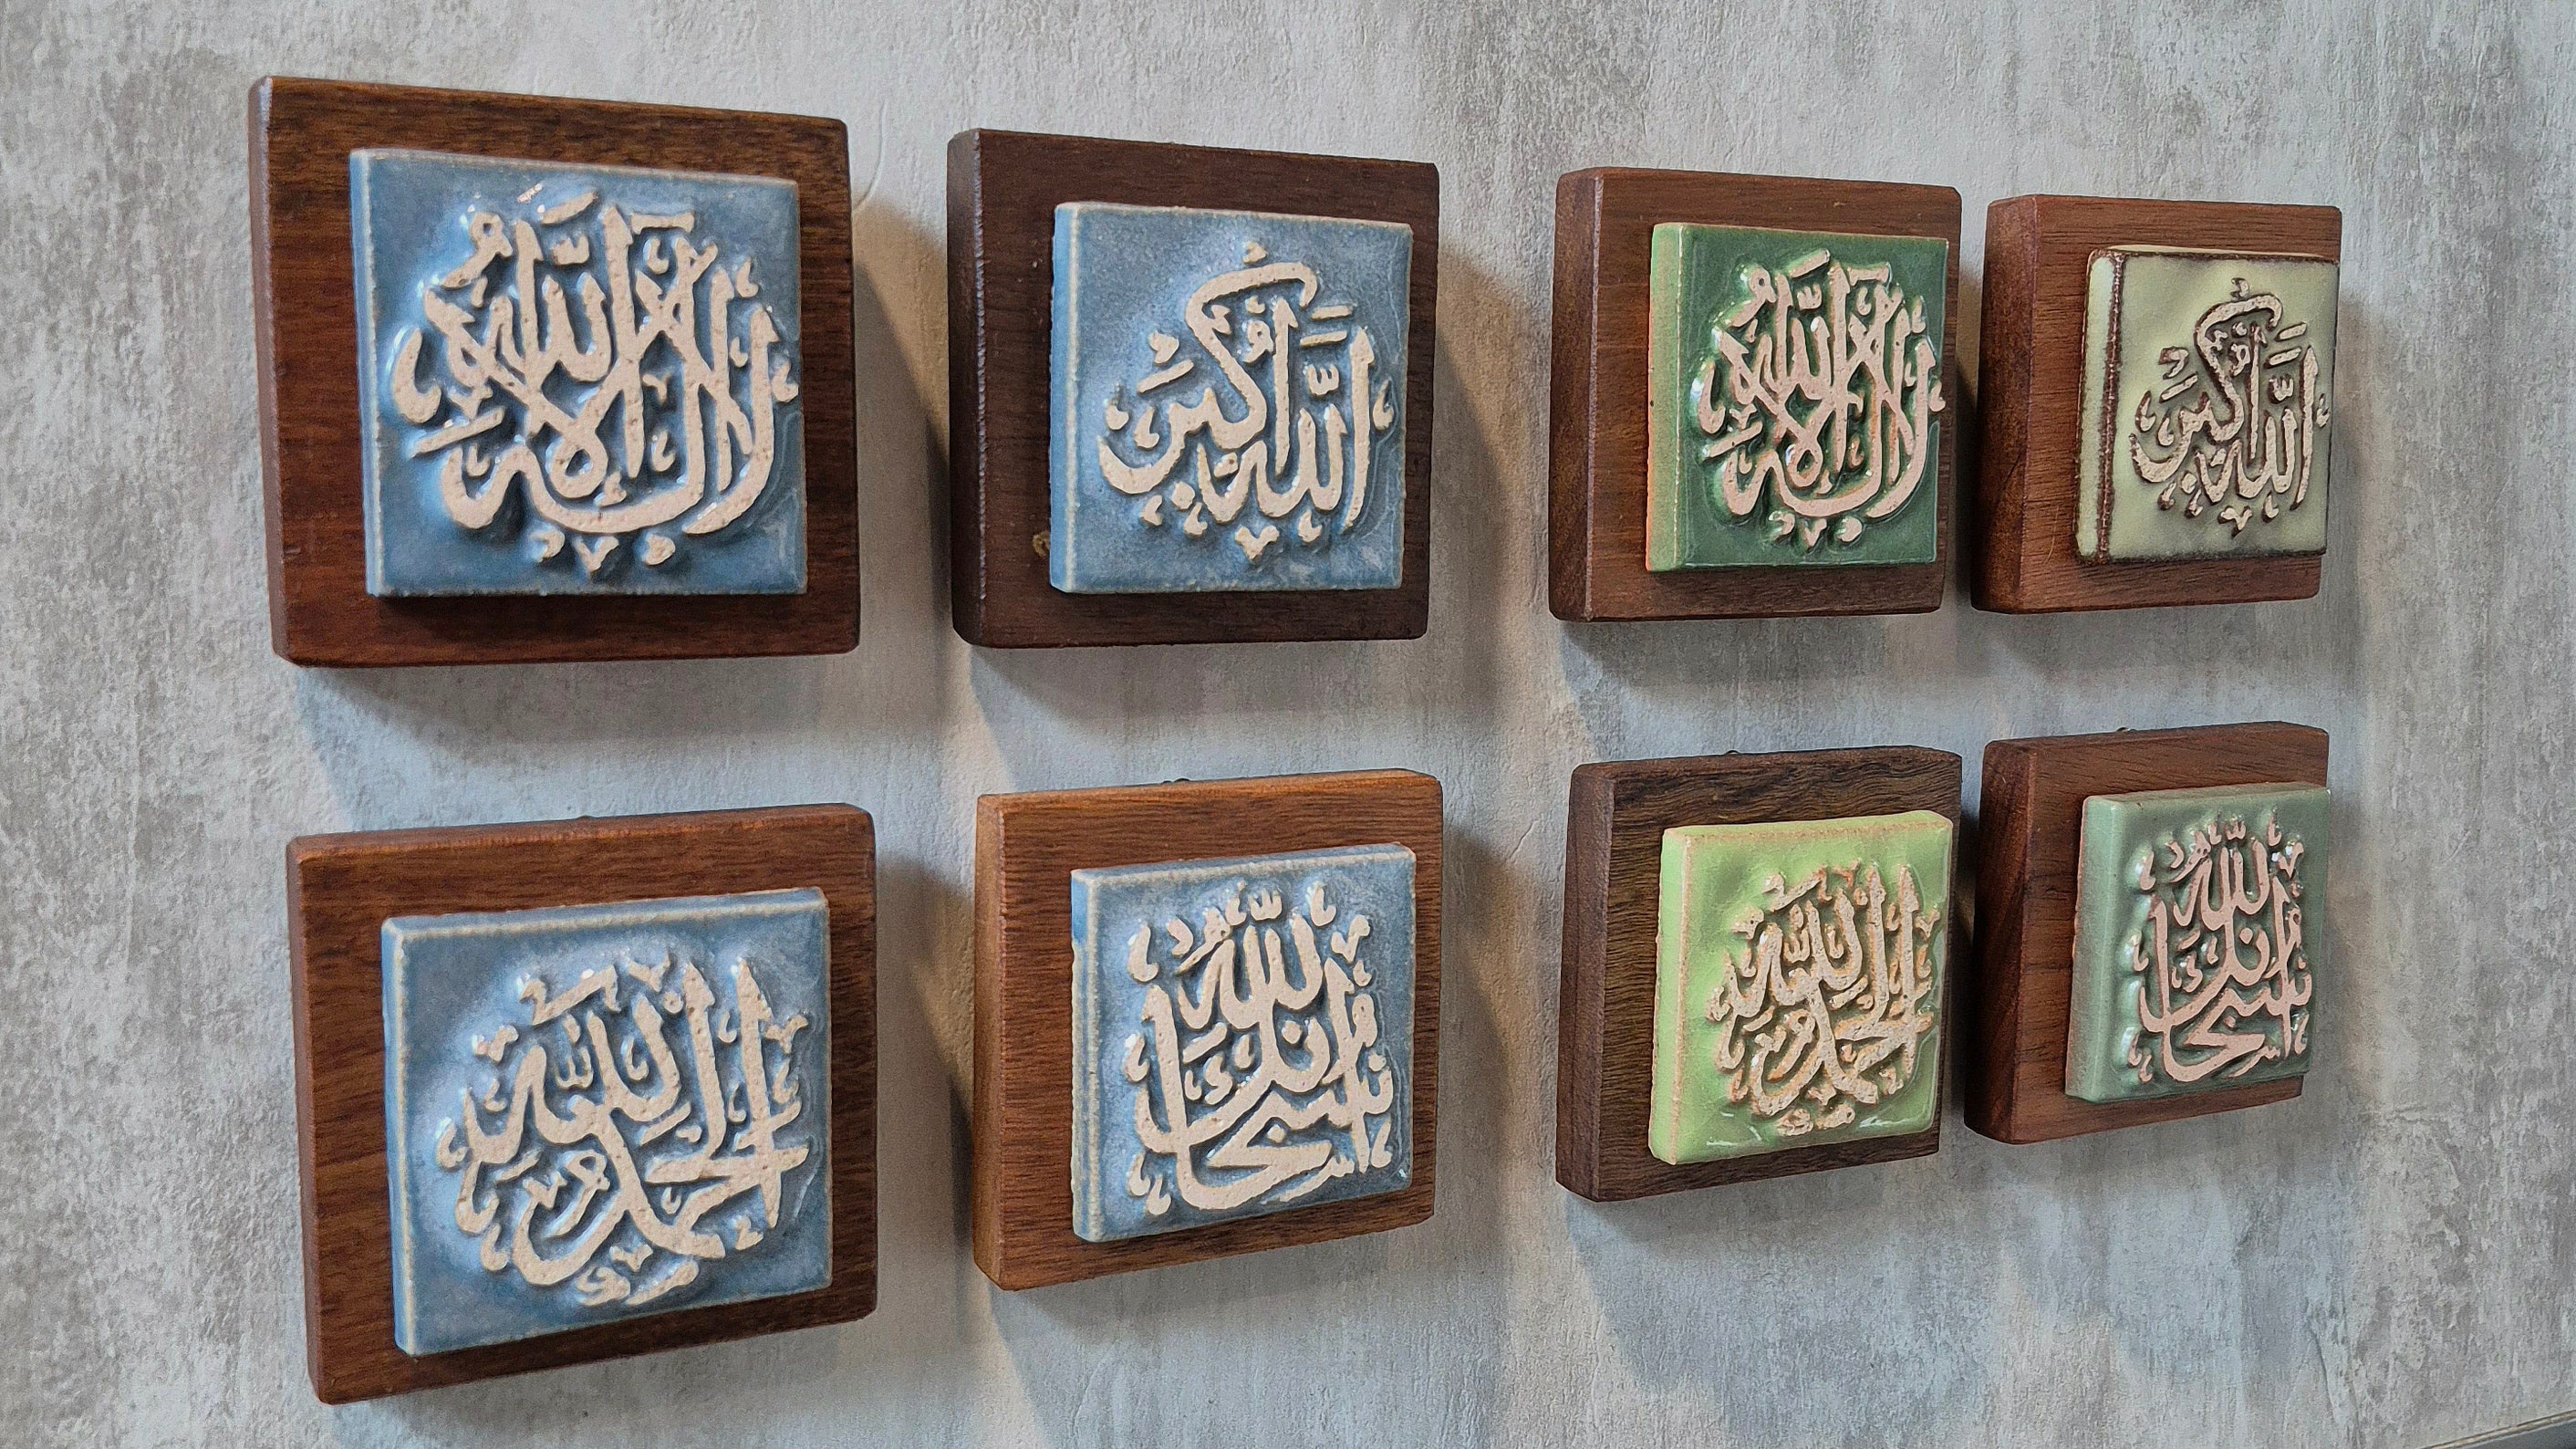 لا إله إلا الله
الله أكبر
لا إله إلا الله
الله أكبر
الحمد لله
سبحان الله
الحمد لله
سبحان الله